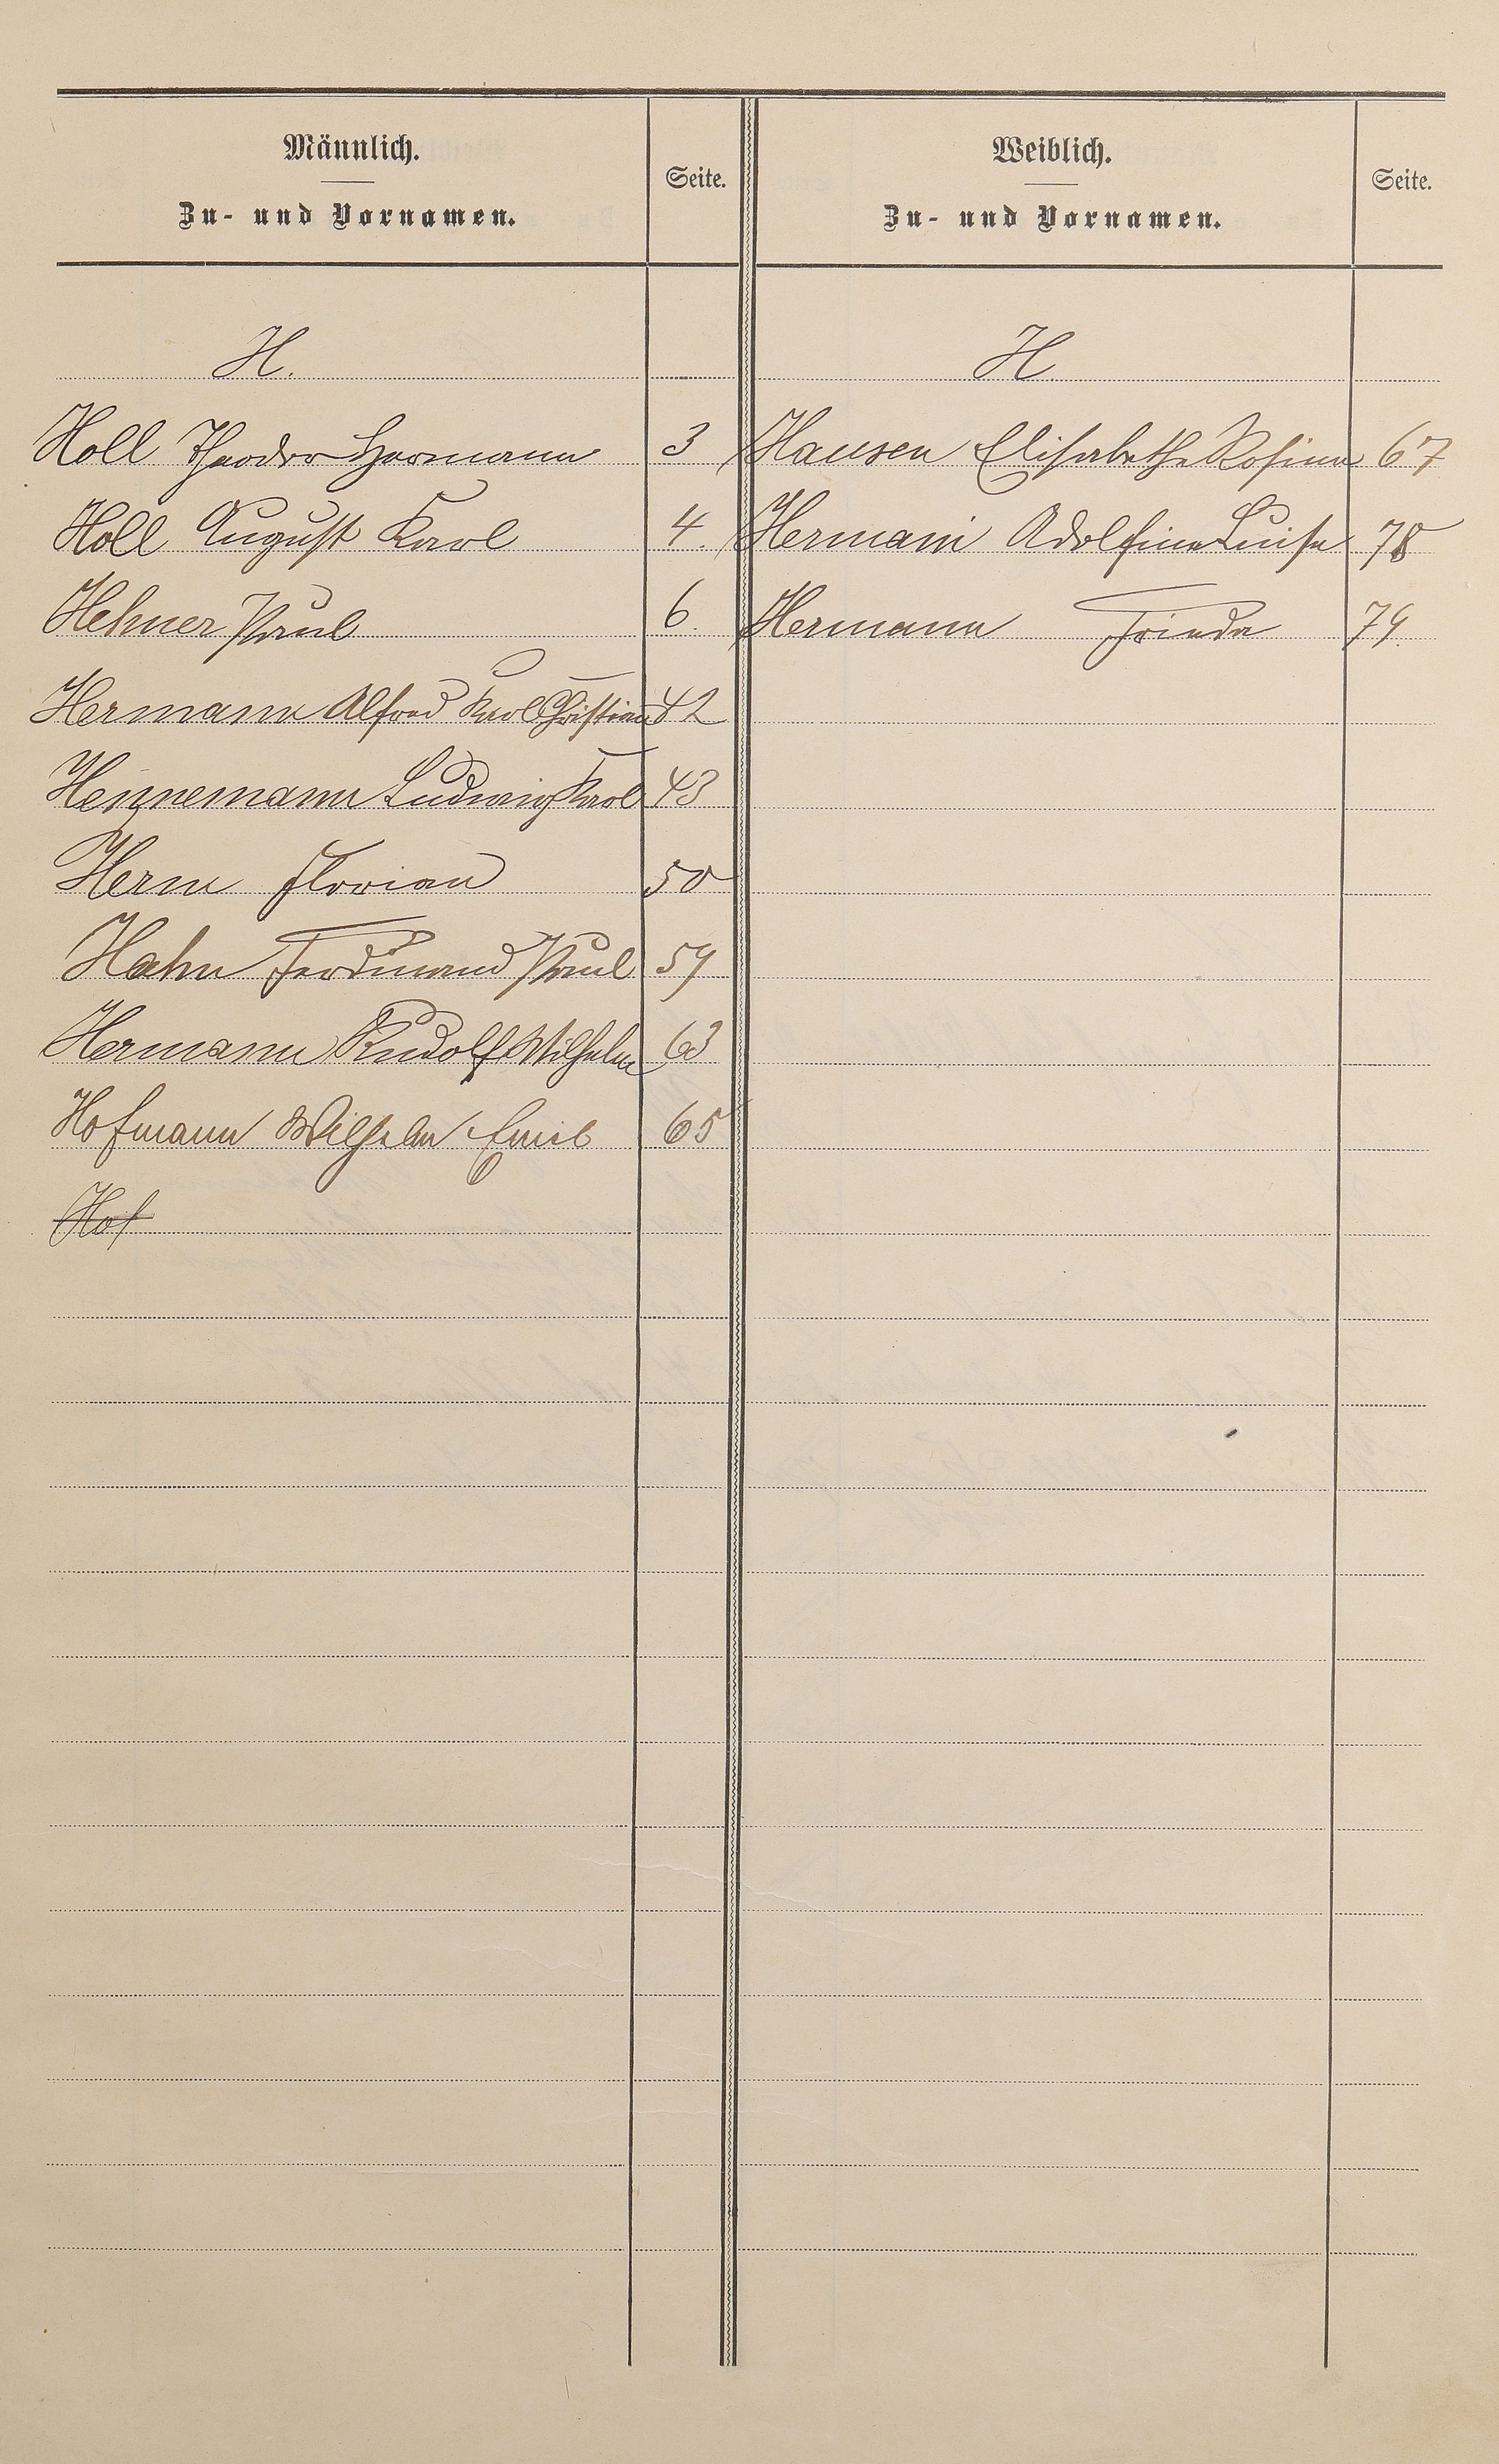 Männlich.
Zu- und Vornamen.
Seite.
Weiblich.
Zu- und Vornamen.
Seite.
H.
H
Holl Theodor Hermann 3
Hausen Elisabetha Rosina 67
Holl August Karl 4.
Hermann Adolfina Luise 78
Hehner Paul 6.
Hermann Frieda 79.
Hermann Alfred Karl Christian 42
Hennemann Ludwig Karl 43
Herm Florian 50
Hahn Ferdinand Paul 59
Hermann Rudolf Wilhelm 63
Hofmann Wilhelm Emil 65
Hof